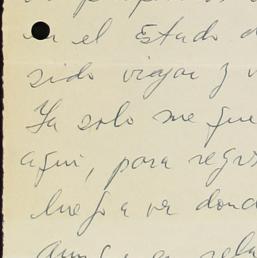 en el Estado d
sido viajar y v
Ya solo me que
aqui, para regr
luego a ver dond